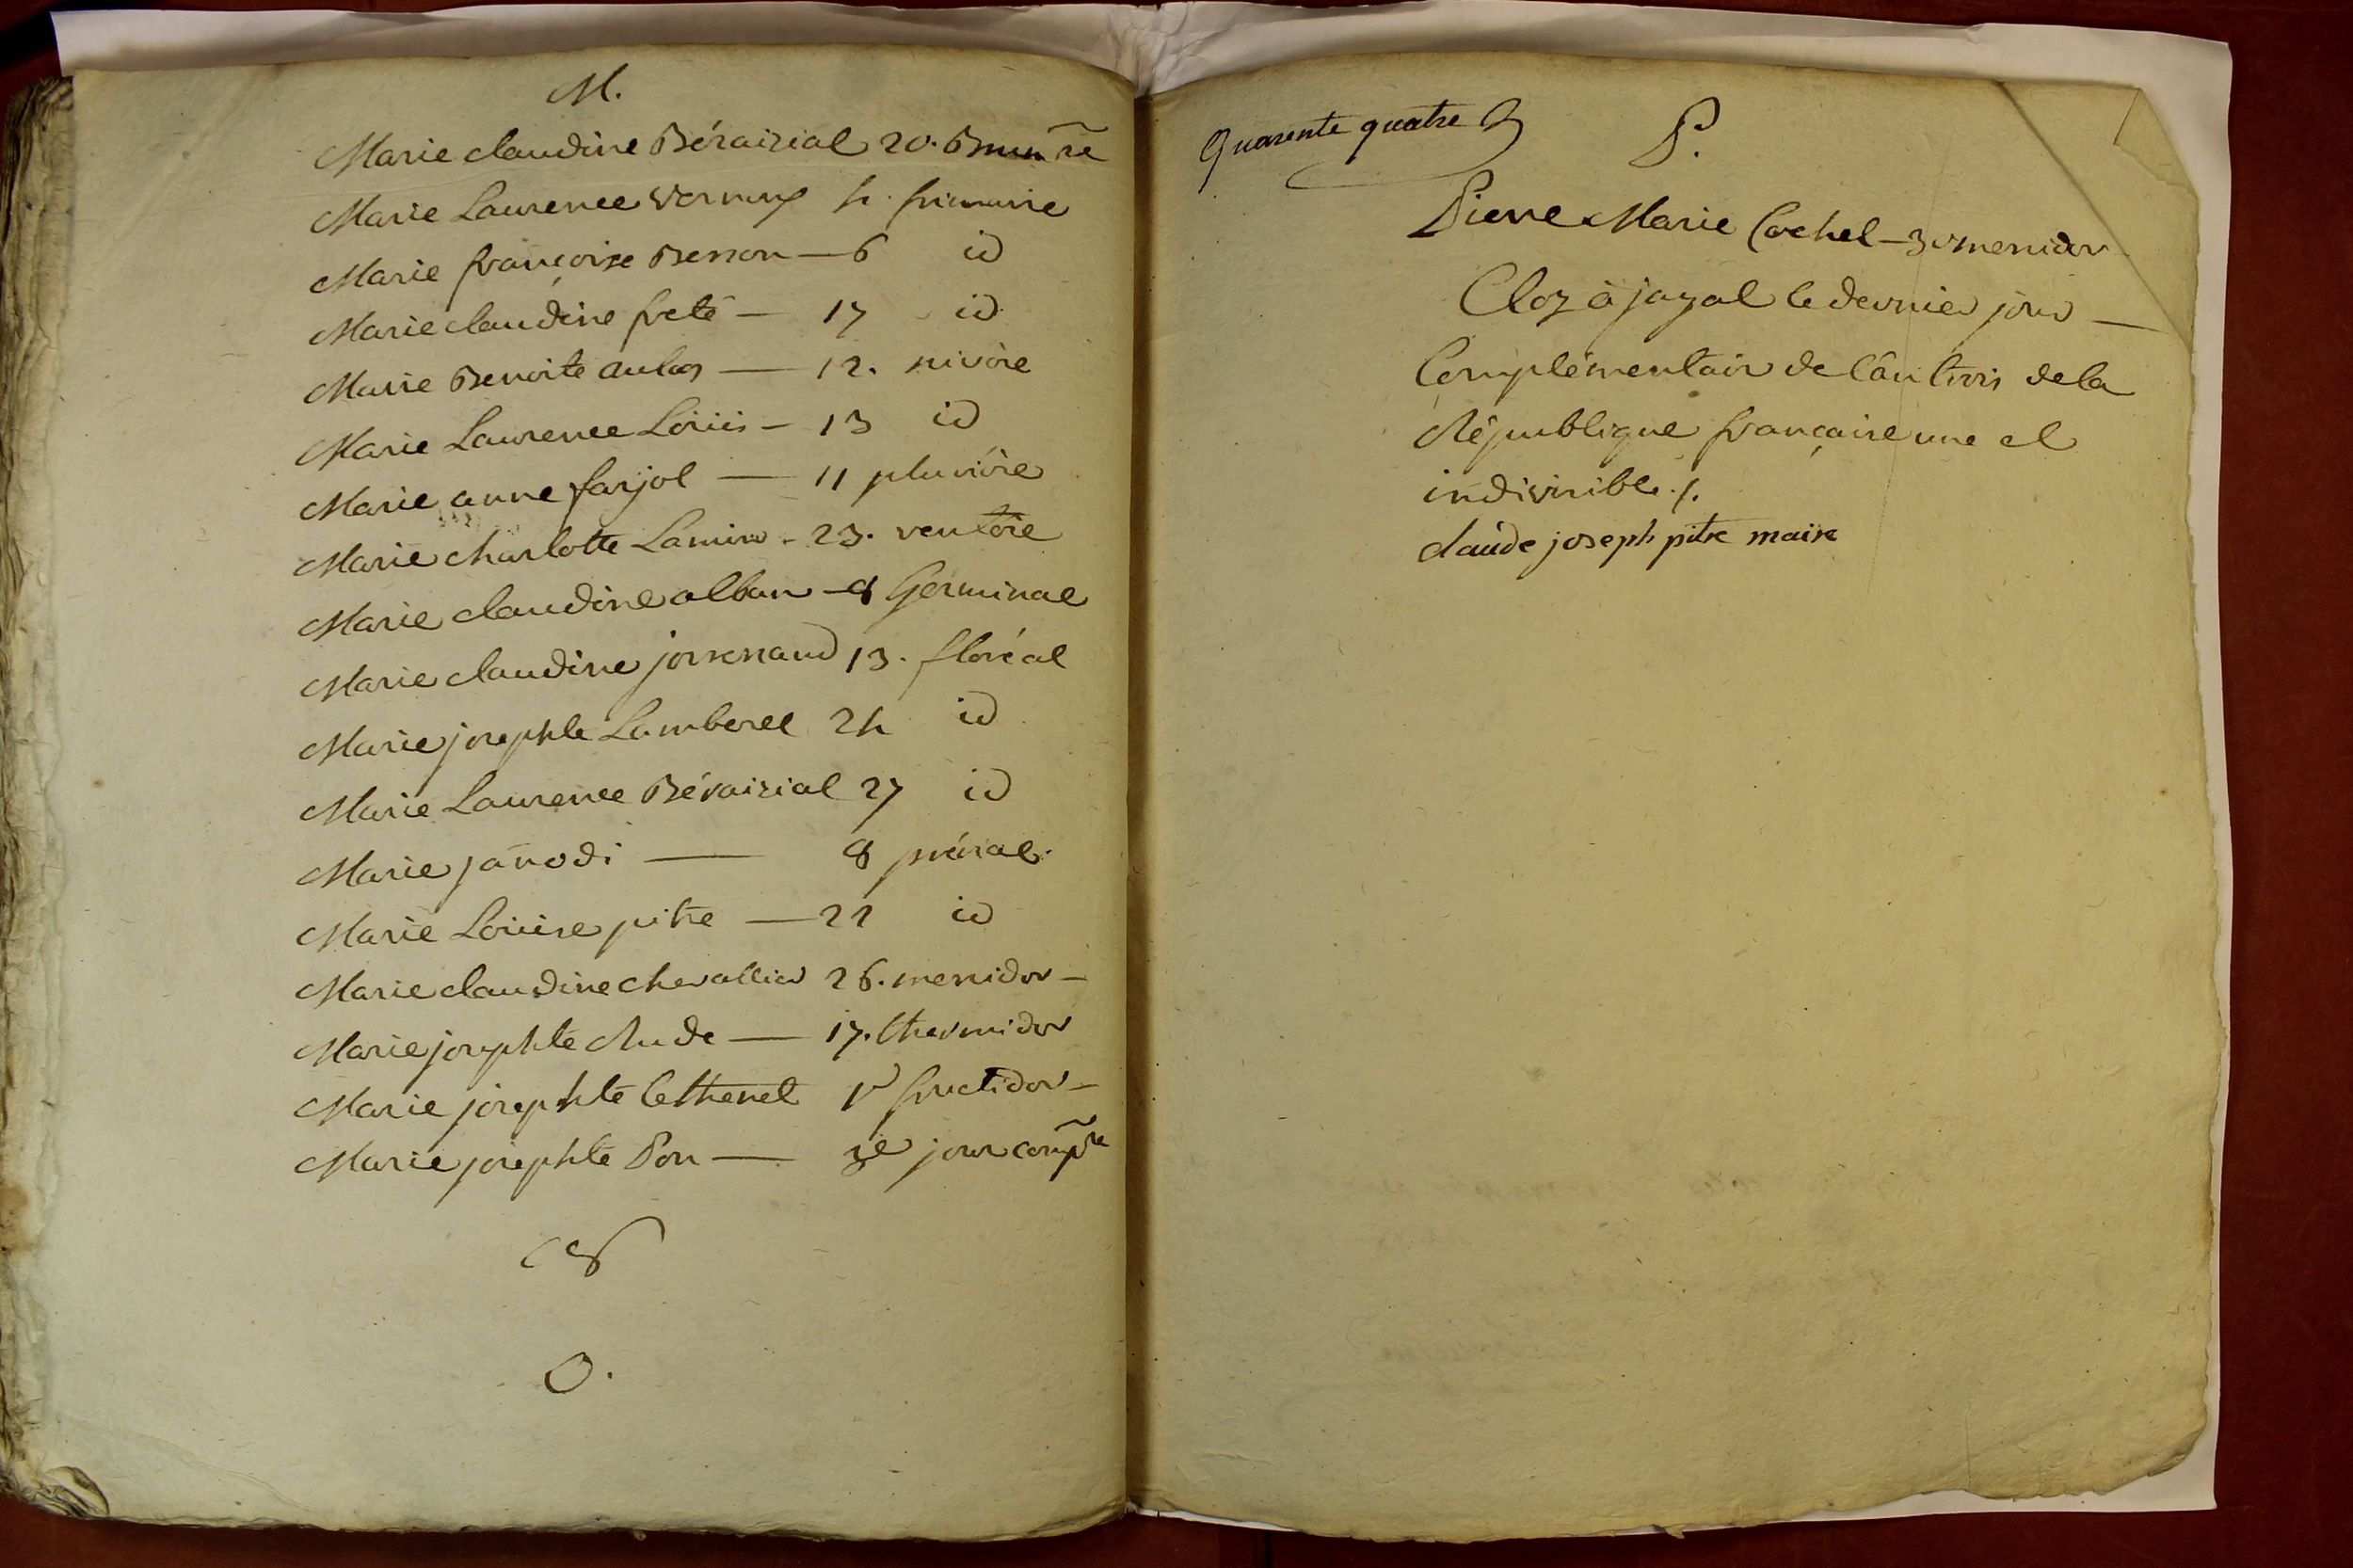 M.
Marie claudine Béraizial 20. Brumre
Marie Laurence vernoux 4. frimaire
Marie françoise Besson — 6 id
Marie claudine freté — 17 id
Marie Benoite aulas — 12. nivôse
Marie Laurence Loüis — 13 id
Marie anne farjol — 11 pluviôse
Marie charlotte Lamiro - 23. ventôse
Marie claudine alban — 8 Germinal
Marie claudine josserand 13. floréal
Marie josephte Lamberel 24 id
Marie Laurence Béraizial 27 id
Marie janodi — 8 prérial.
Marie Loüise pitre — 22 id
Marie claudine chevallier 26. messidor —
Marie josephte Aude — 17. thermidor
Marie josephte Cethenel 1er fructidor —
Marie josephte Pon — 3e jour compre
O.
Quarente quatre
P.
Pierre Marie Cochel — 30 messidor
Cloz à jayal le dernier jour —
Complémentair de l'an trois de la
République française une et
indivisible ./.
claude joseph pitre maire